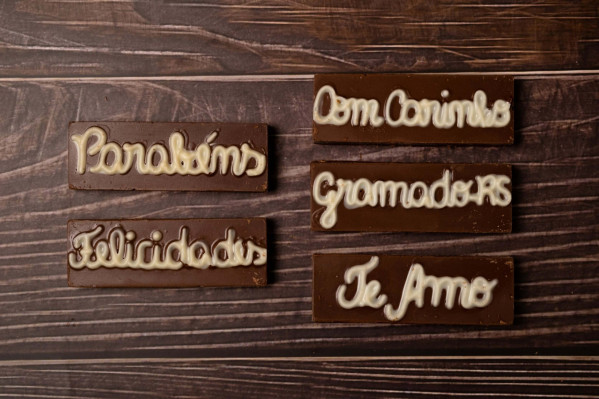 Parabéns
Felicidades
Com Carinho
Gramado-RS
Te Amo